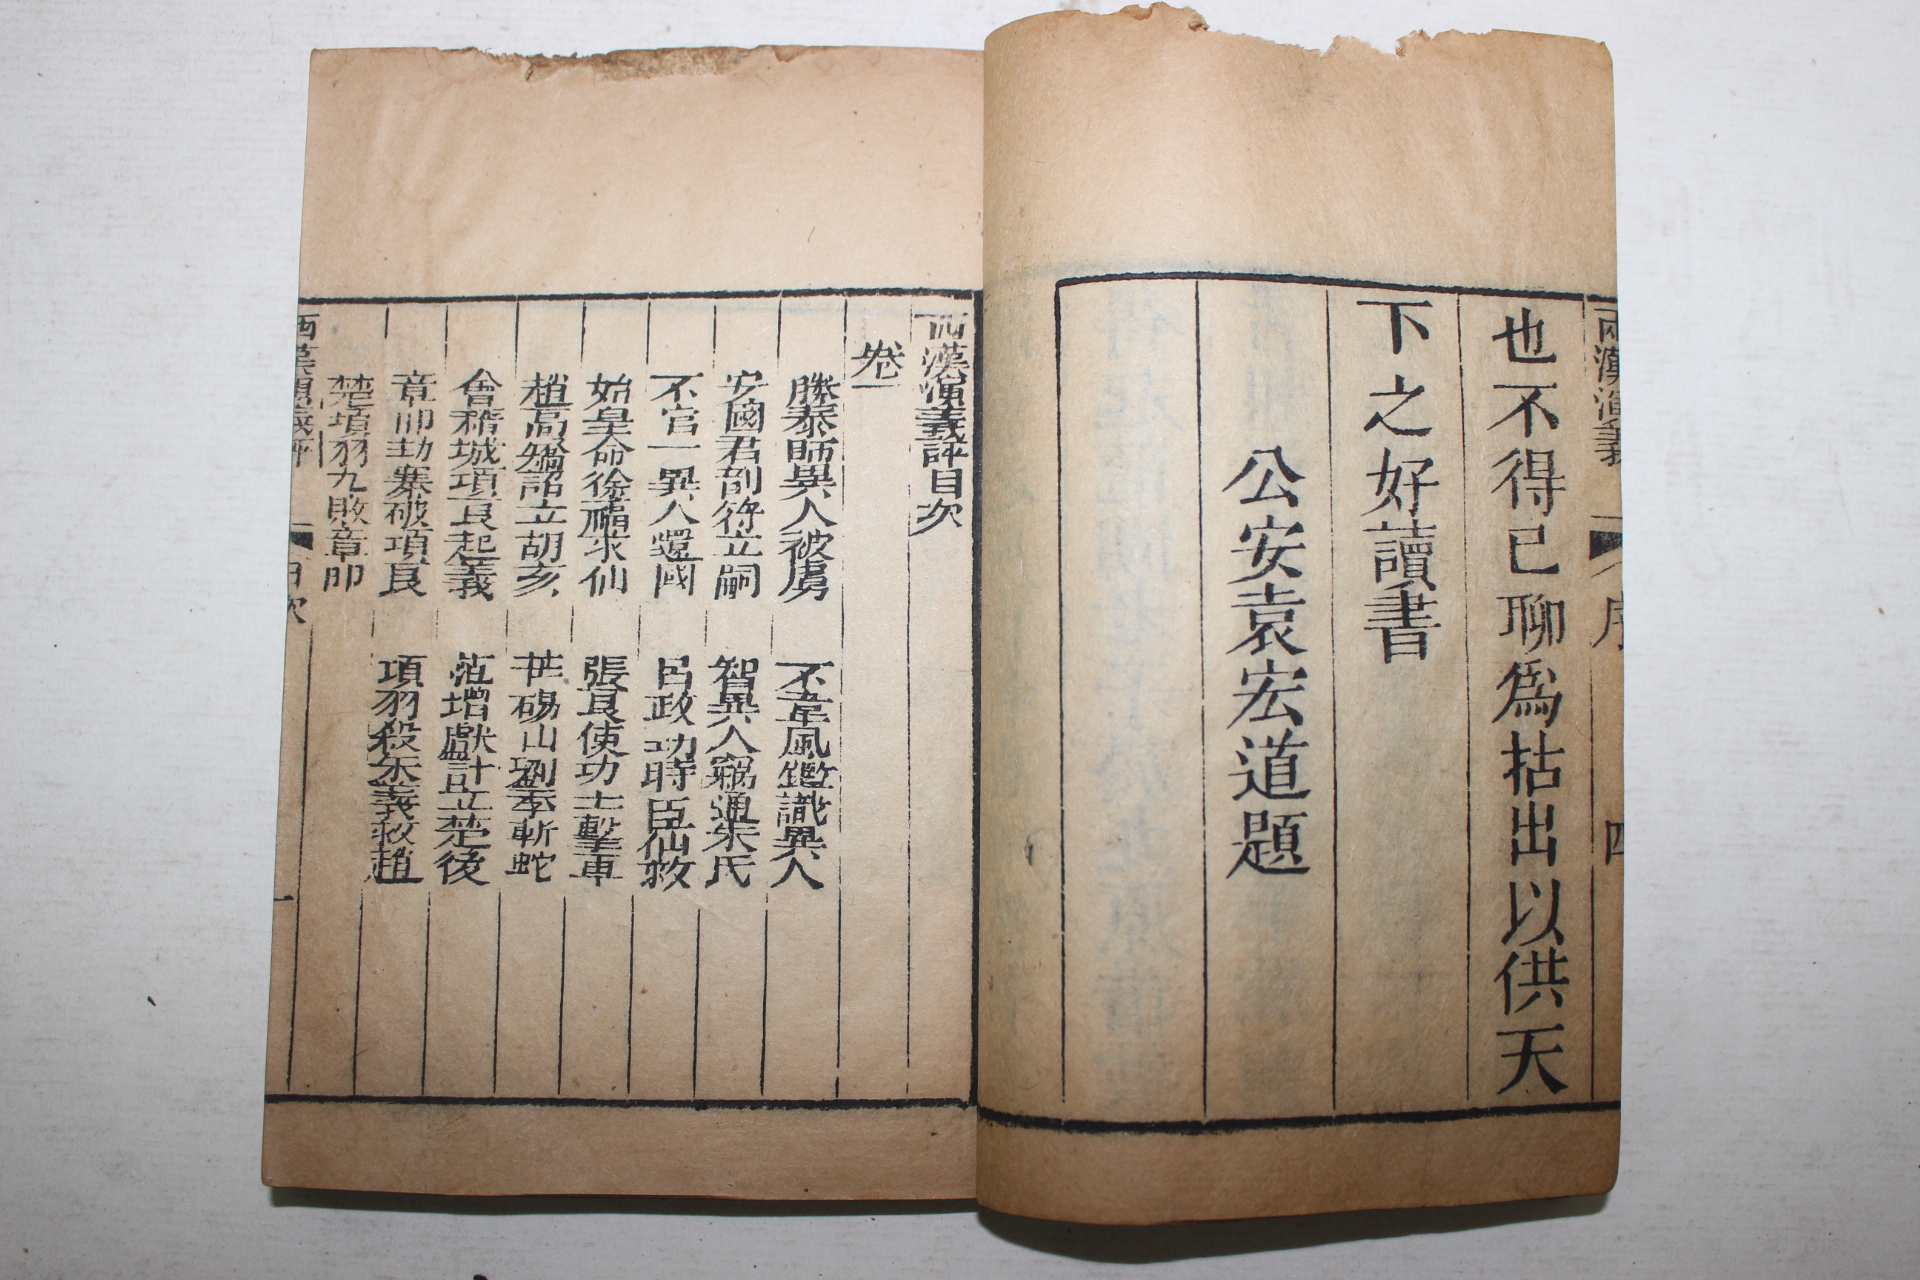 兩漢演義
序
四
也不得已聊爲拈出以供天
下之好讀書
公安袁宏道題
西漢演義評目次
卷一
勝秦師異人被虜
不韋風鑑識異人
安國君剖符立嗣
智異人竊通朱氏
不官一異人還國
呂政功時臣仙救
始皇命徐福求仙
張良使力士擊車
趙高矯詔立胡亥
芒碭山劉季斬蛇
會稽城項良起義
范增獻計立楚後
章邯劫寨破項良
項羽殺朱義救趙
楚項羽九敗章邯
西漢演義評
目次
一